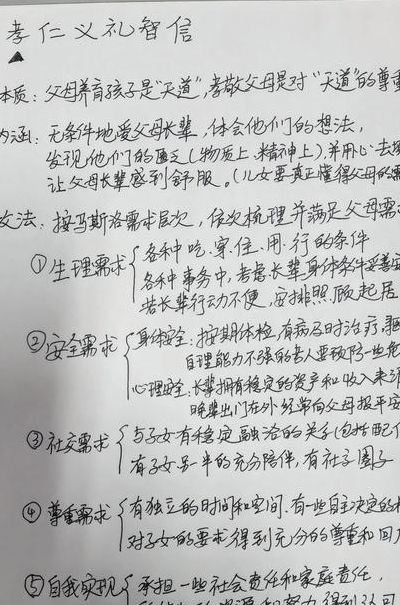 孝仁义礼智信
本质：父母养育孩子是“天道”，孝敬父母是对“天道”的尊重
内涵：无条件地爱父母长辈，体会他们的想法，
发现他们的匮乏（物质上、精神上），并用心去
让父母长辈感到舒服。（儿女要真正懂得父母的需
方法：按马斯洛需求层次，依次梳理并满足父母需
①生理需求
各种吃、穿、住、用、行的条件
各种事务中，考虑长辈身体条件妥善安
若长辈行动不便，安排照顾起居
②安全需求
身体安全：按期体检，有病及时治疗，
自理能力不强的老人要预防一些危
心理安全：长辈拥有稳定的资产和收入来
晚辈出门在外经常向父母报平安
③社交需求
与子女有稳定融洽的关系（包括配
有子女另一半的充分陪伴，有社子圈子
④尊重需求
有独立的时间和空间，有一些自主决定的
对子女的要求得到充分的尊重和回
⑤自我实现
承担一些社会责任和家庭责任，
得到认可